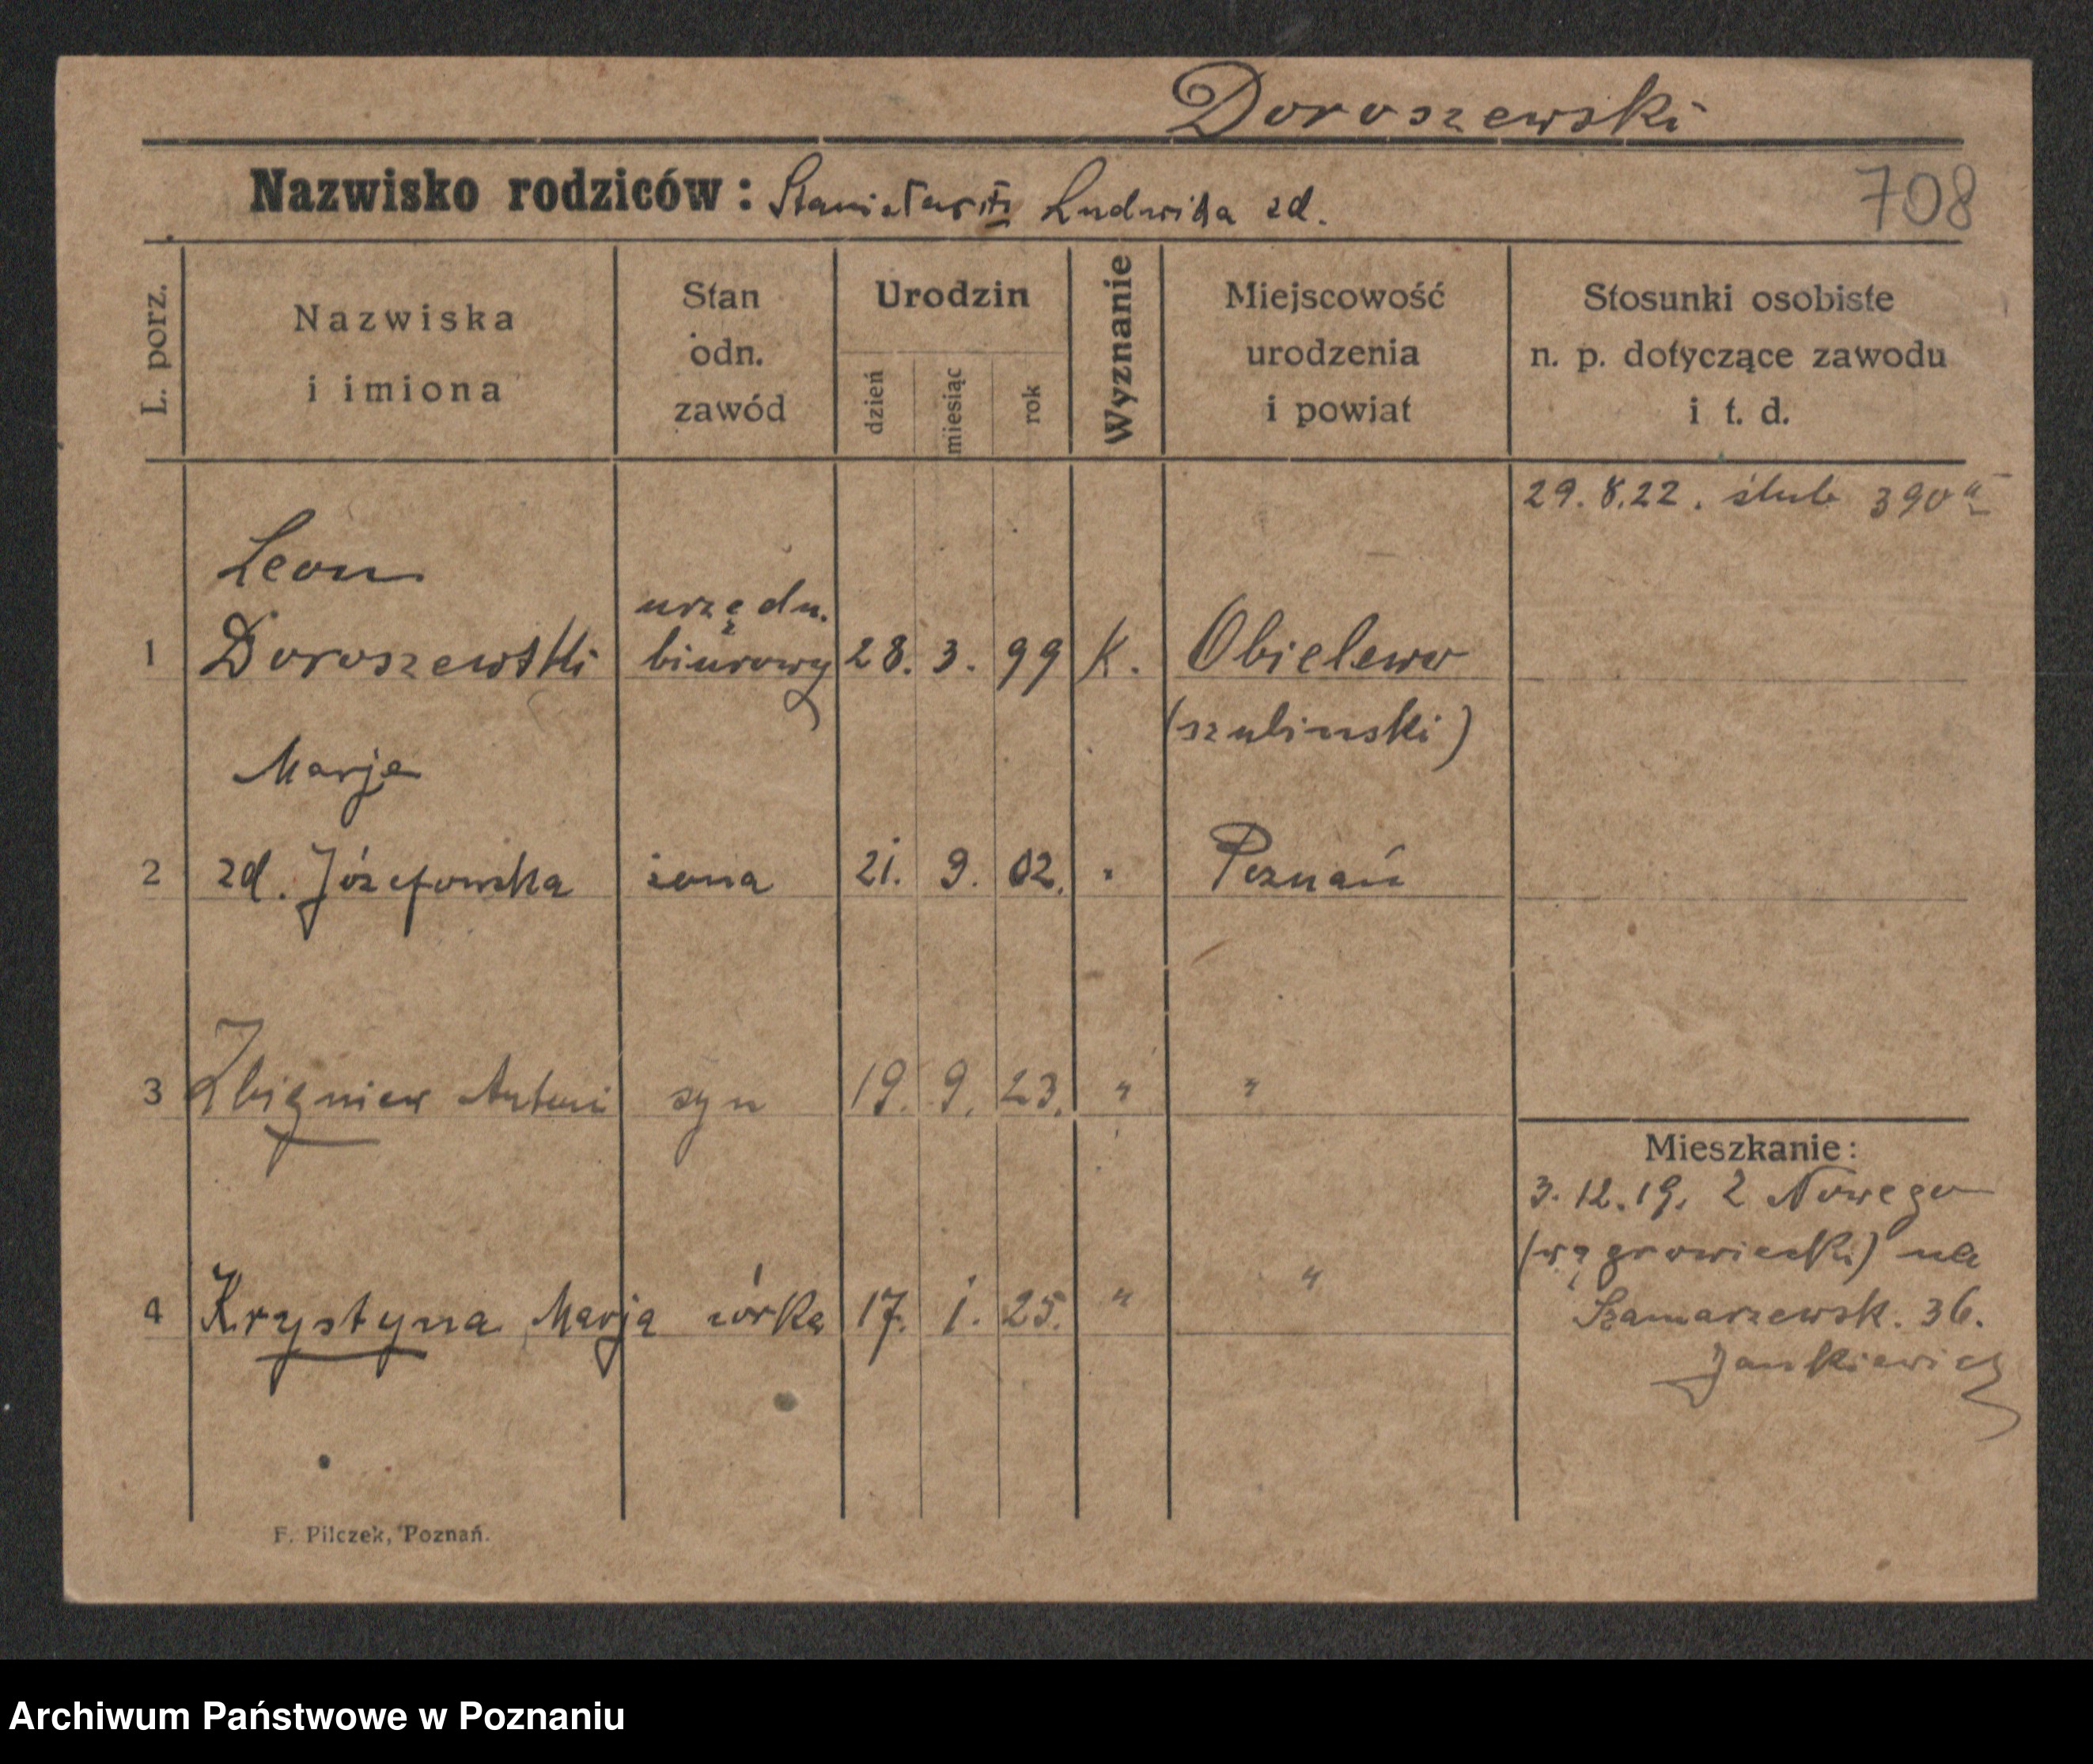 Doroszewski
Nazwisko rodziców: Ludwika zd.
708
L. porz.
Nazwiska
i imiona
Stan
odn.
zawód
Urodzin
dzień
miesiąc
rok
Wyznanie
Miejscowość
urodzenia
i powiat
Stosunki osobiste
n. p. dotyczące zawodu
i t. d.
29.8.22. ślub 390
Leon
urzędn.
1 Doroszewski biurowy 28. 3. 99 K. Obielewo
(szubinski)
Marja
2 zd. Józefowska żona 21. 9. 02. " Poznań
3 Zbigniew Antoni syn 19. 9. 23. " "
4 Krystyna Marja córka 17. 1. 25. " "
Mieszkanie:
3.12.19. Z Nowego
(wągrowiecki) na
Szamarzewsk. 36.
Jankiewicz
F. Pilczek, Poznań.
Archiwum Państwowe w Poznaniu